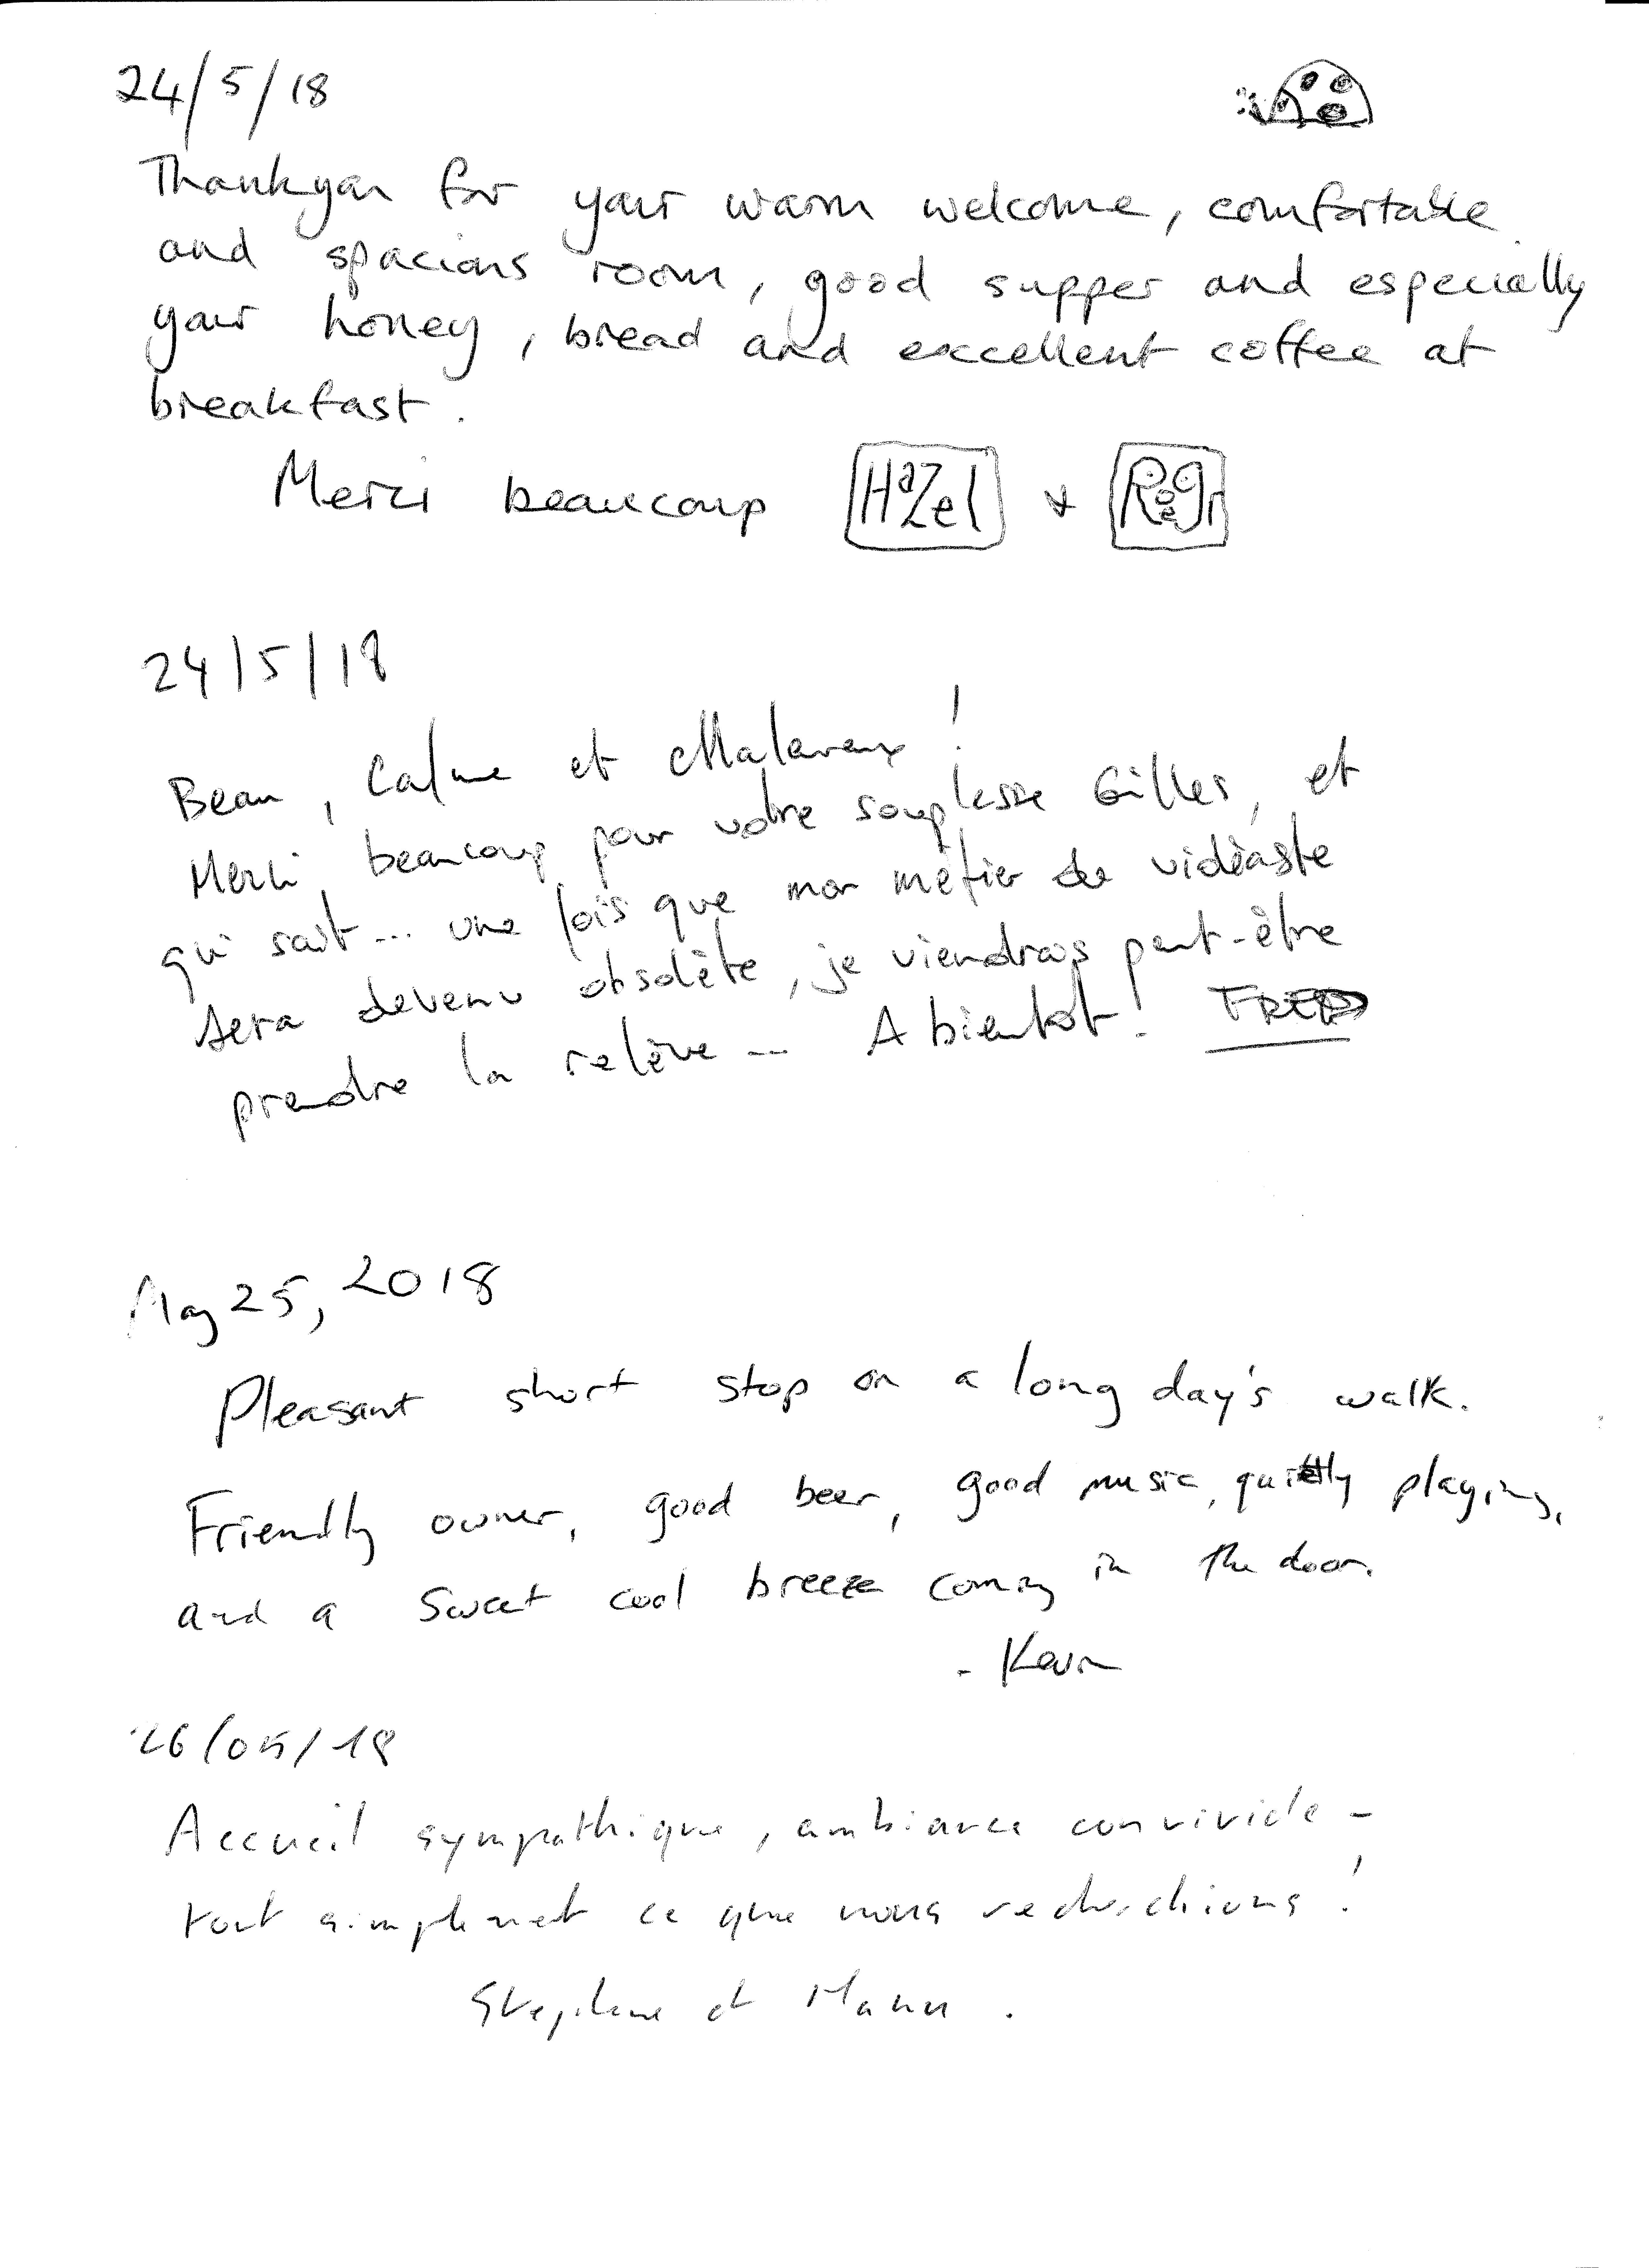 24/5/18
Thankyou for your warm welcome, comfortable
and spacious room, good supper and especially
your honey, bread and excellent coffee at
breakfast.
Merci beaucoup HaZel + Roger
24/5/18
Beau, Calme et Malavaux !
Merci beaucoup pour votre souplesse Gilles, et
qui sait... une fois que mon métier de vidéaste
sera devenu obsolète, je viendrais peut-être
prendre la relève... A bientôt! FRED
May 25, 2018
Pleasant short stop on a long day's walk.
Friendly owner, good beer, good music, quietly playing,
and a sweet cool breeze coming in the door.
- Kevin
26/05/18
Accueil sympathique, ambiance conviviale -
tout simplement ce que nous recherchions !
Stephane et Manu.